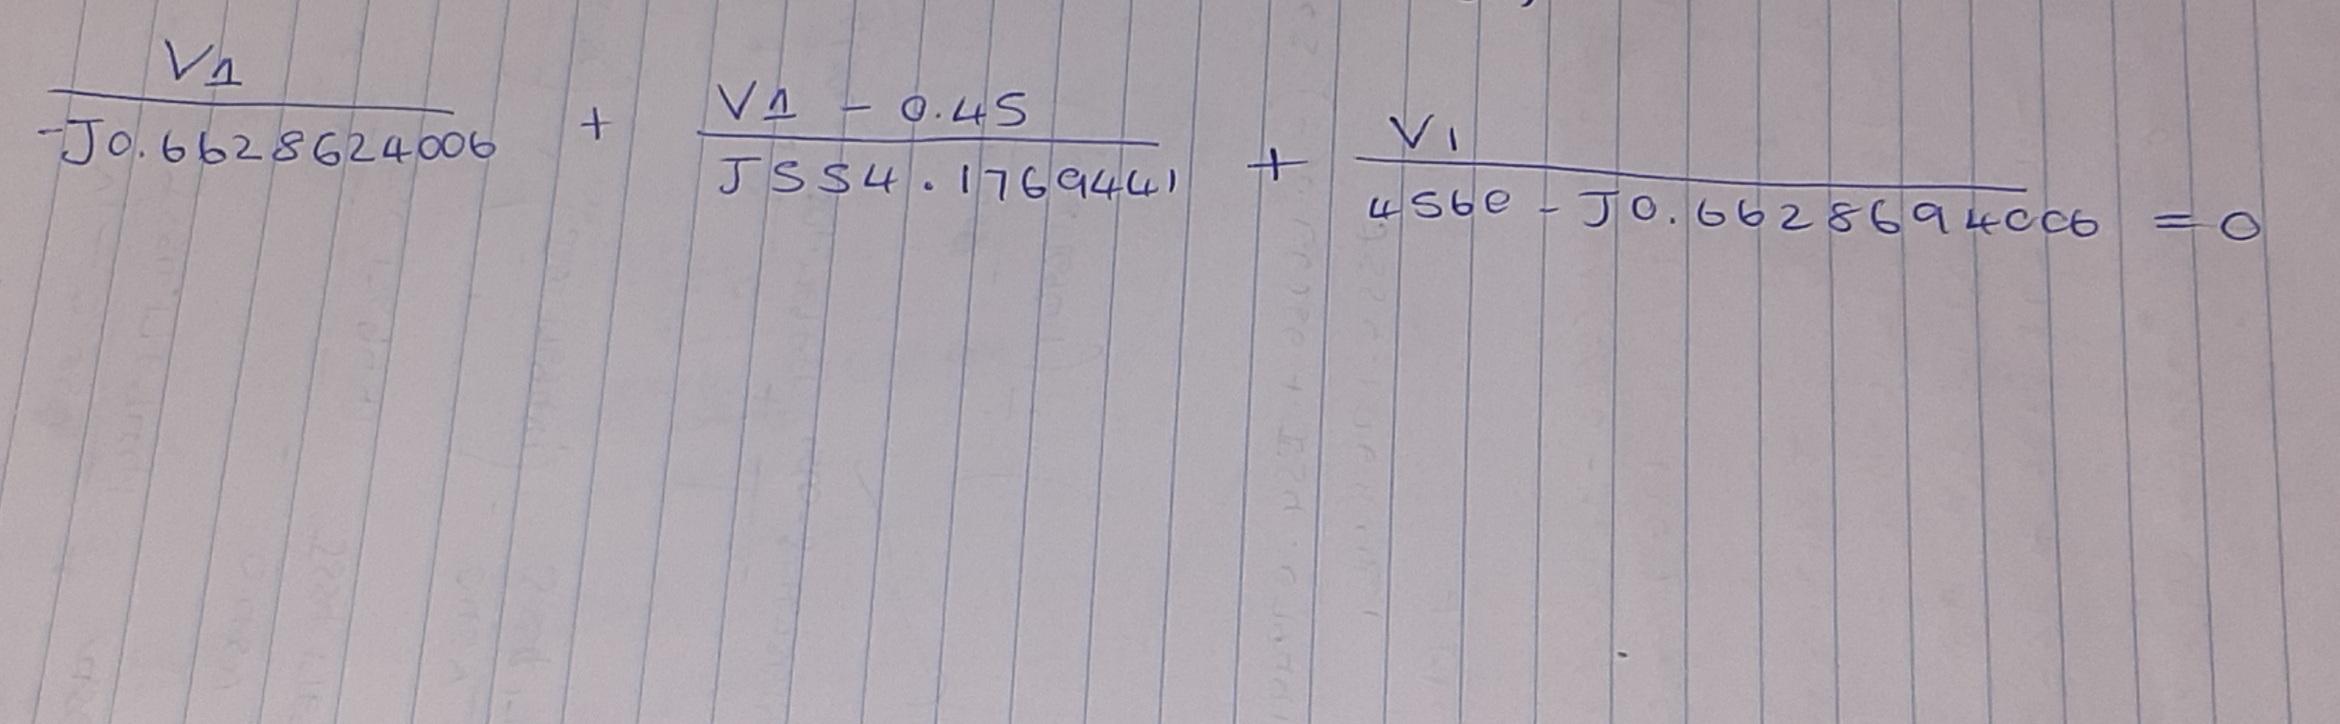 V1 / -J0.6628624006 + V1 - 0.45 / J554.1769441 + V1 / 4560 - J0.6628694006 = 0